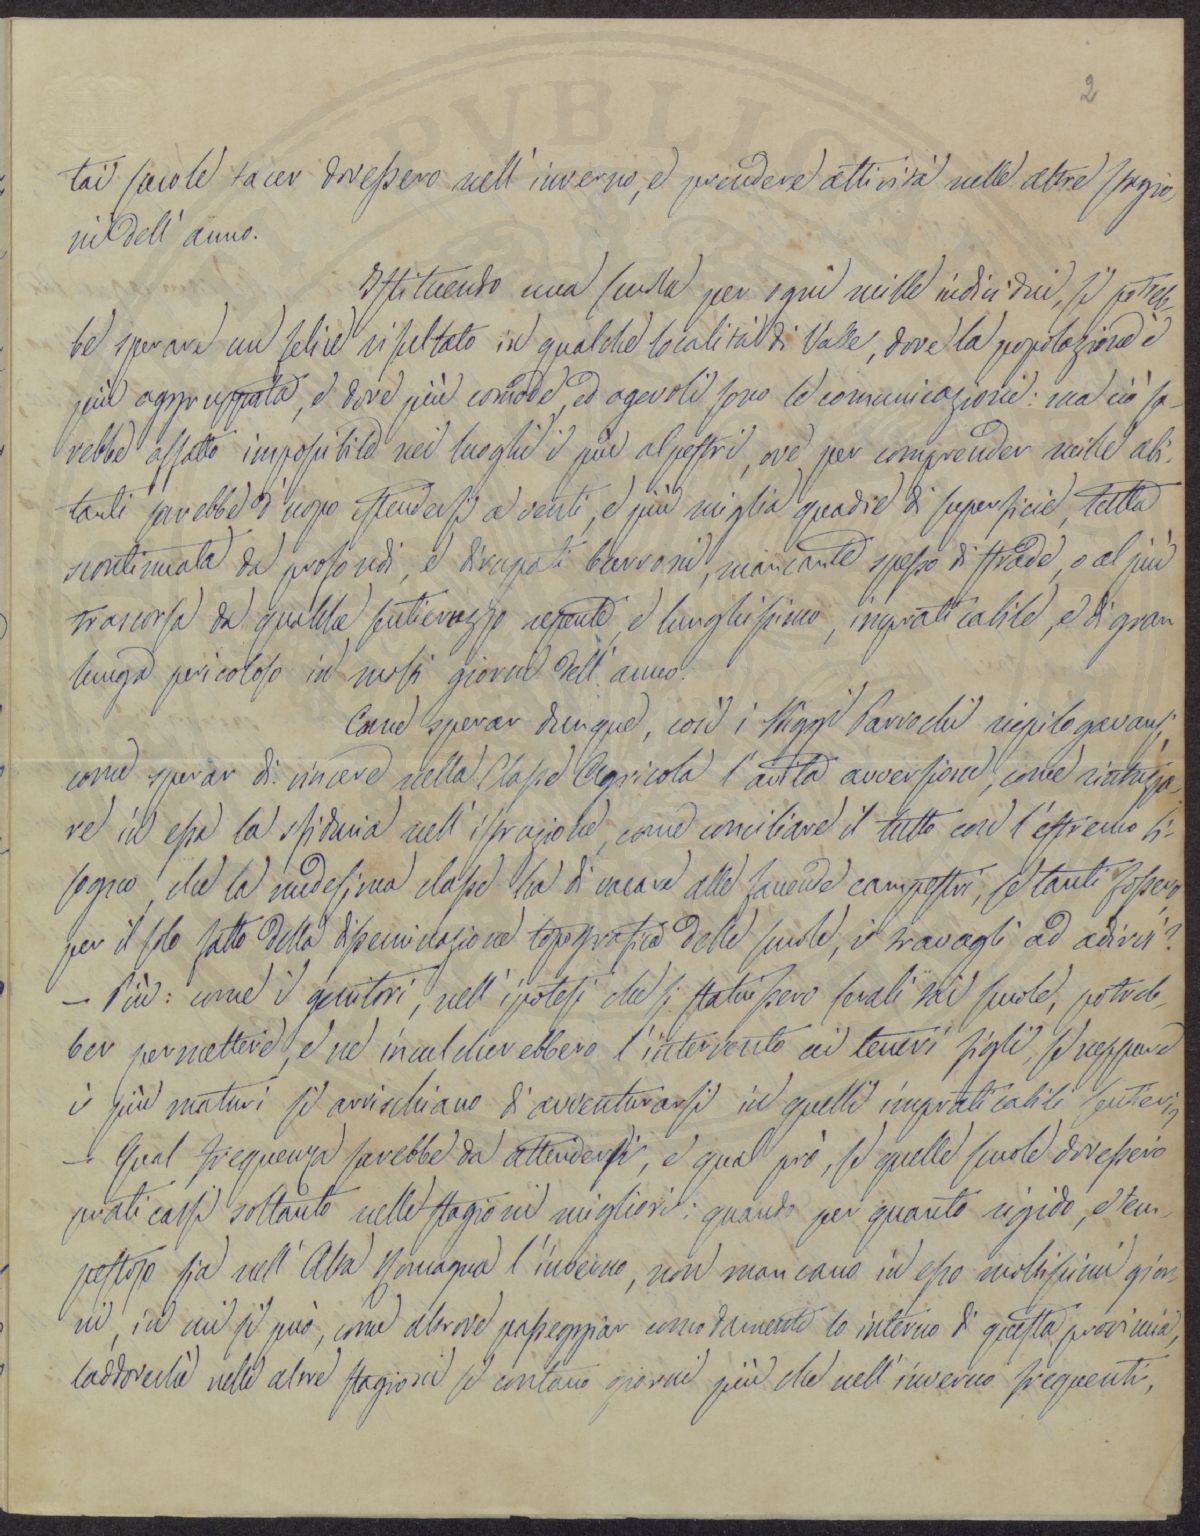 2
tai scuole tacer dovessero nell'inverno, e prendere attività nelle altre stagio-
ni dell'anno.
Istituendo una scuola per ogni mille individui, si potreb-
be sperare un felice risultato in qualche località di Valle, dove la popolazione è
più aggruppata, e dove più comode, ed agevoli sono le comunicazioni: ma ciò sa-
rebbe affatto impossibile nei luoghi i più alpestri, ove per comprender mille abi-
tanti sarebbe d'uopo estendersi a venti, e più miglia quadre di superficie, tutta
scontinuata da profondi, e dirupati burroni, mancante spesso di strade, o al più
trascorsa da qualche sentieruzzo repente, e lunghissimo, impraticabile, e di gran
lunga pericoloso in molti giorni dell'anno.
Come sperar dunque, così i Parrochi riepilogavansi,
come sperar di vincere nella Classe Agricola l'avita avversione, come rintuzza-
re in essa la sfiducia nell'istruzione, come conciliare il tutto con l'estremo bi-
sogno, che la medesima classe ha di vacare alle faccende campestri, se tanti fossero,
per il solo fatto della disseminazione topografica delle scuole, i travagli ad adirvi?
— Più: come i genitori, nell'ipotesi che si statuissero serali tai scuole, potreb-
ber permettere, e ne inculcherebbero l'intervento ai teneri figli, se neppure
i più maturi si arrischiano di avventurarsi in quelli impraticabili sentieri?
— Qual frequenza sarebbe da attendersi, e qual prò, se quelle scuole dovessero
praticarsi soltanto nelle stagioni migliori: quando per quanto rigido, e tem-
pestoso sia nell'Alta Romagna l'inverno, non mancano in esso moltissimi gior-
ni, in cui si può, come altrove passeggiar comodamente lo interno di questa provincia,
laddovechè nelle altre stagioni si contano giorni più che nell'inverno frequenti,
PVBLIC